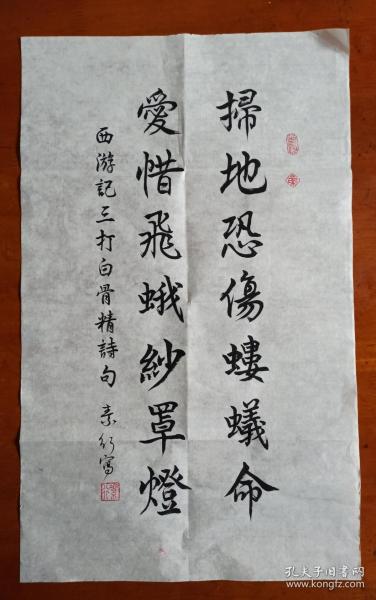 掃地恐傷螻蟻命
愛惜飛蛾紗罩燈
西游記三打白骨精詩句 素行寫
孔夫子旧书网